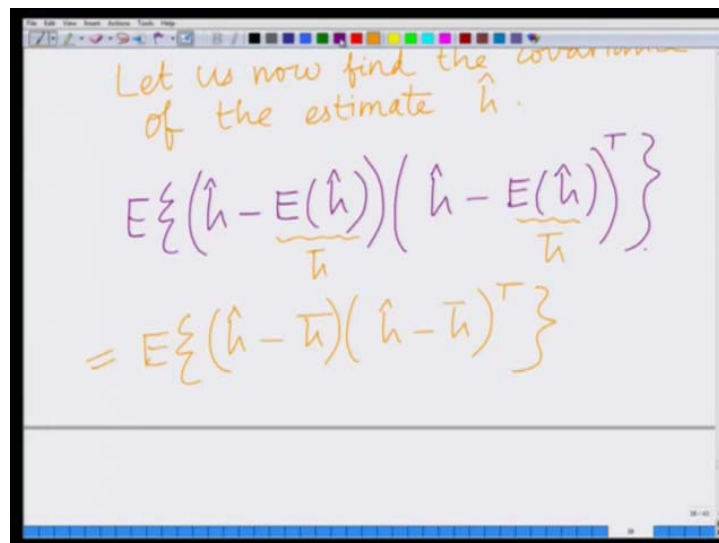 File Edit View Insert Actions Tools Help
B I
Let us now find the covariance
of the estimate ĥ.
E{(ĥ − E(ĥ))(ĥ − E(ĥ))ᵀ}.
h̄ h̄
= E{(ĥ − h̄)(ĥ − h̄)ᵀ}